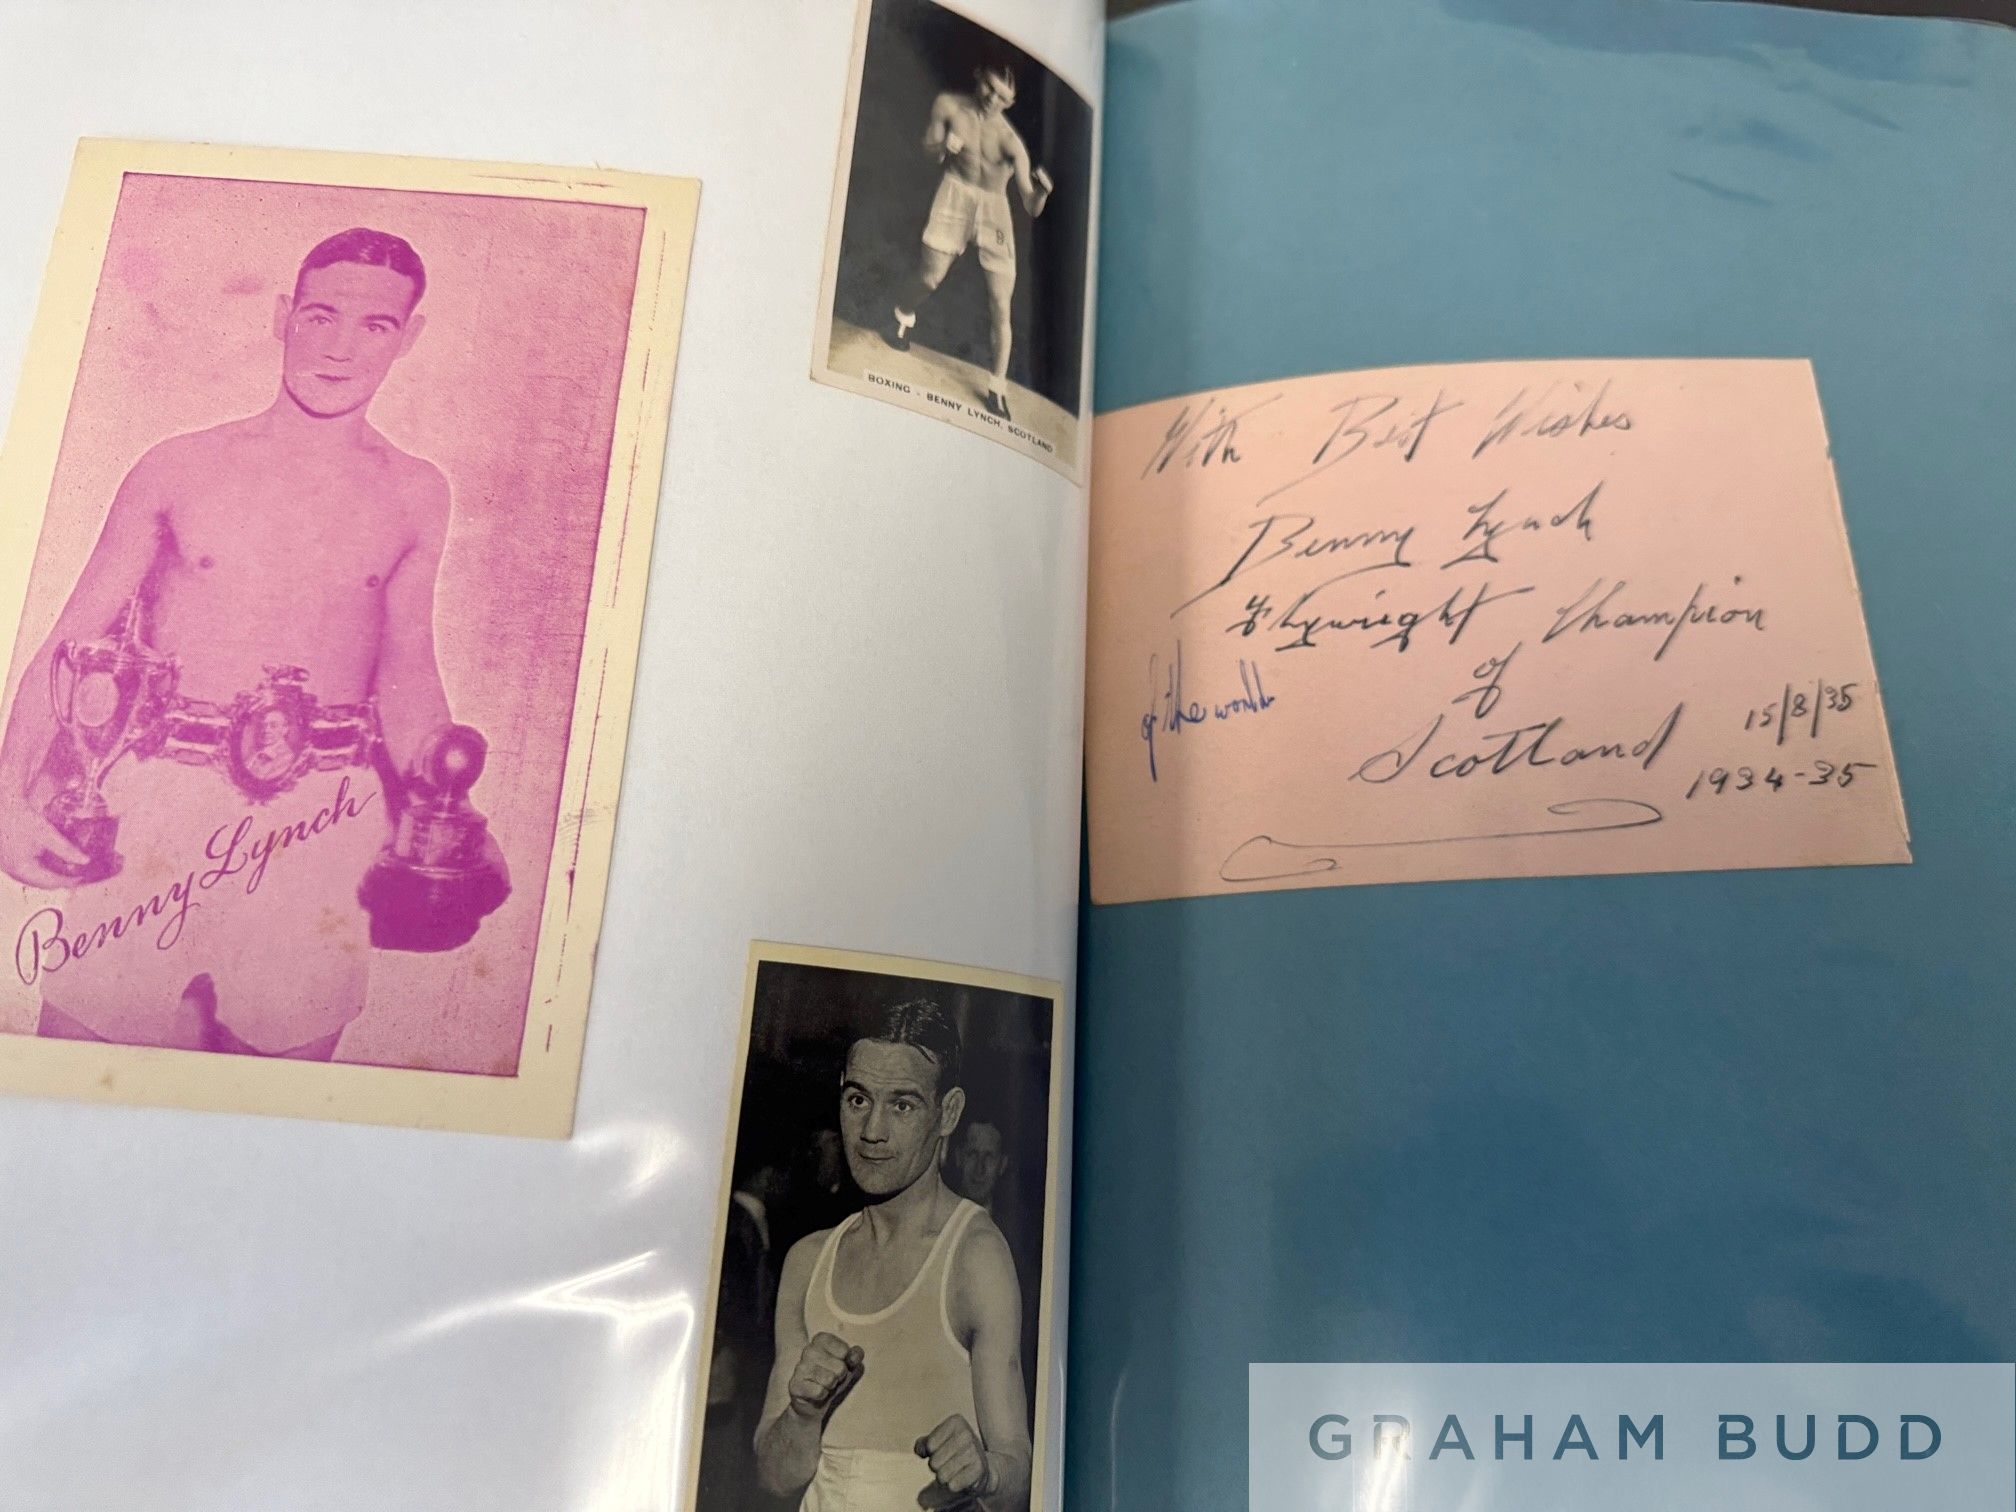 Benny Lynch
BOXING - BENNY LYNCH, SCOTLAND
B
With Best Wishes
Benny Lynch
Flyweight Champion
of the world
of
Scotland
15/8/35
1934-35
GRAHAM BUDD